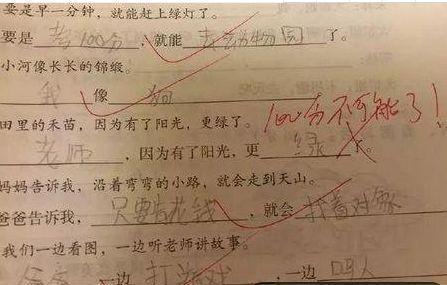 要是早一分钟，就能赶上绿灯了。
要是考100分，就能去动物园了。
小河像长长的锦缎。
我像狗
田里的禾苗，因为有了阳光，更绿了。
100分不可能了！
老师，因为有了阳光，更绿了。
妈妈告诉我，沿着弯弯的小路，就会走到天山。
爸爸告诉我，只要有花钱，就会
我们一边看图，一边听老师讲故事。
一边打游戏，一边骂人